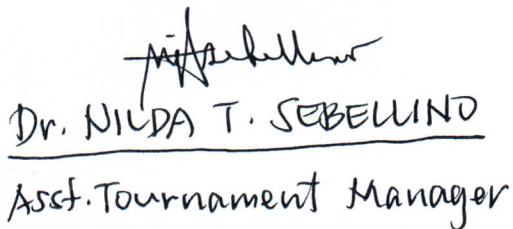 Dr. NILDA T. SEBELLINO
Asst. Tournament Manager